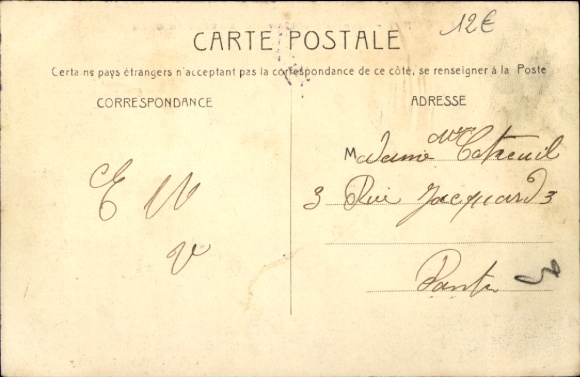 12€
CARTE POSTALE
Certains pays étrangers n'acceptant pas la correspondance de ce côté, se renseigner à la Poste
CORRESPONDANCE
ADRESSE
Madame
3 Rue Jacquard 3
E W
v